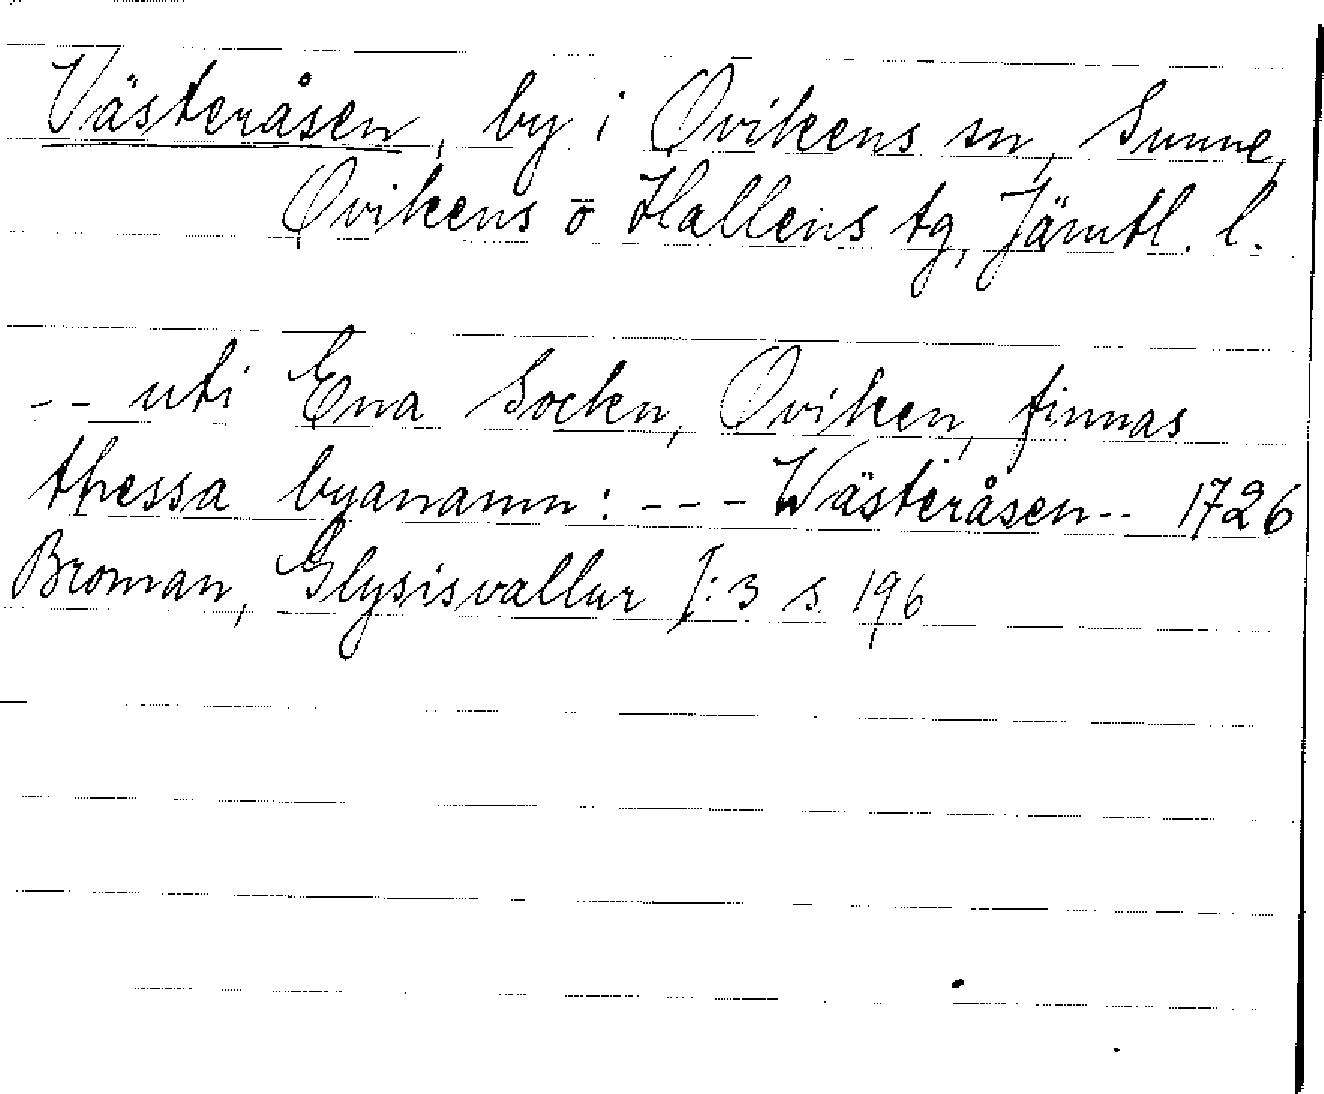 Västeråsen, by i Ovikens sn, Sunne,
Ovikens o Hallens tg, Jämtl. l.
-- uti Ena Sockn, Oviken, finnas
thessa byanamn: --- Wästeråsen -- 1726
Broman, Glysisvallur I:3 s. 196